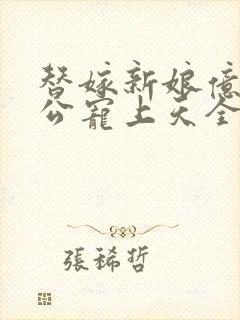 替嫁新娘億
公寵上天全
張稀哲